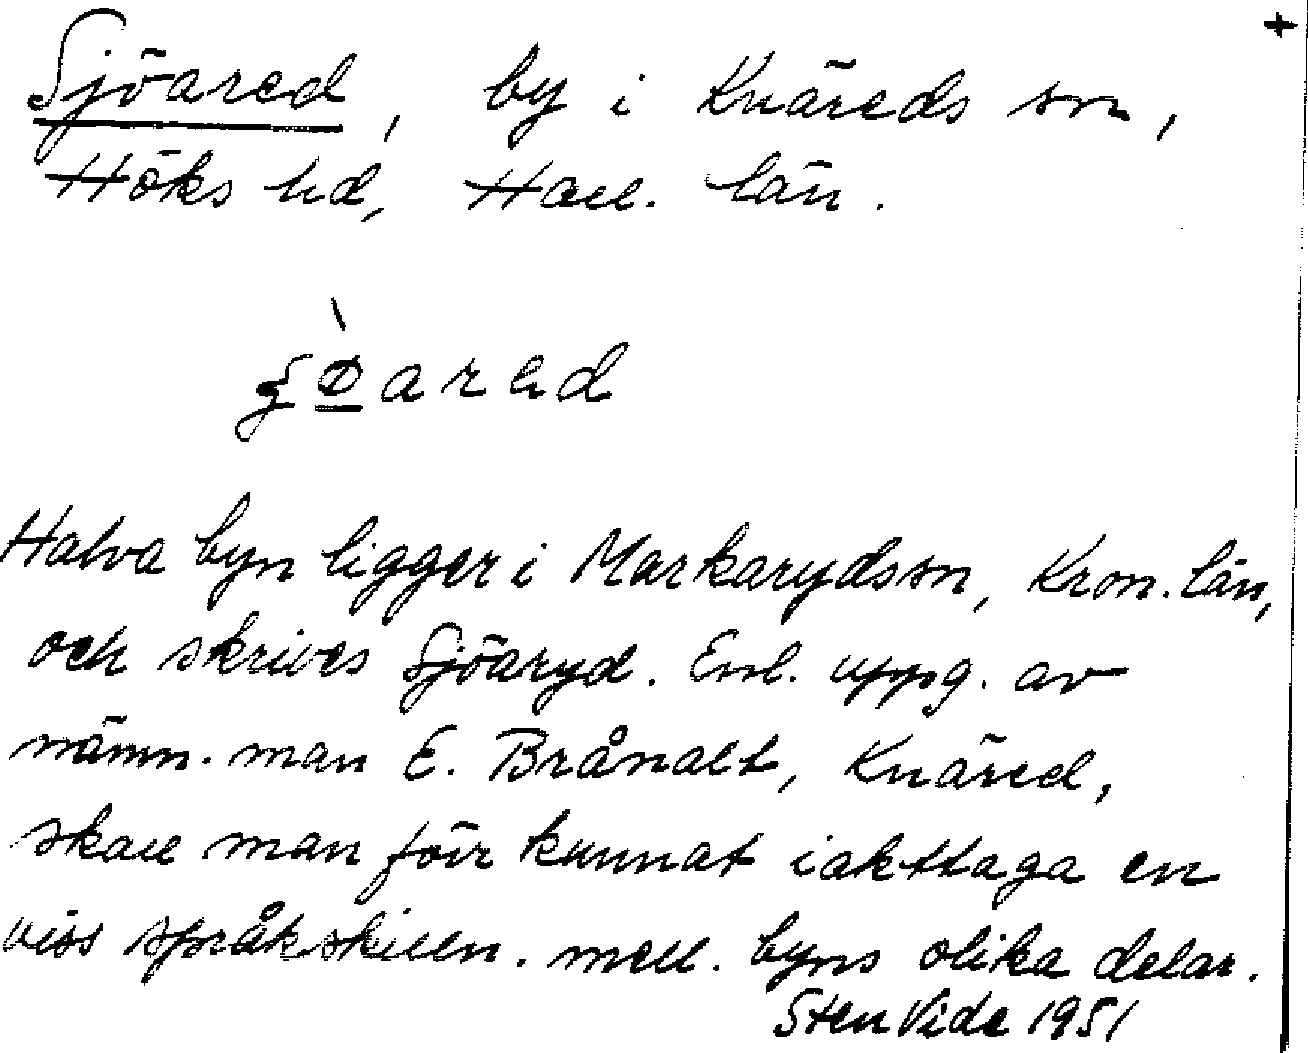 +
Sjöared, by i Knäreds sn,
Höks hd, Hall. län.
Halva byn ligger i Markaryds sn, Kron. län,
och skrives Sjöaryd. Enl. uppg. av
nämn. man E. Brånalt, Knäred,
skall man förr kunnat iakttaga en
viss språkskilln. mell. byns olika delar.
Sten Vide 1951